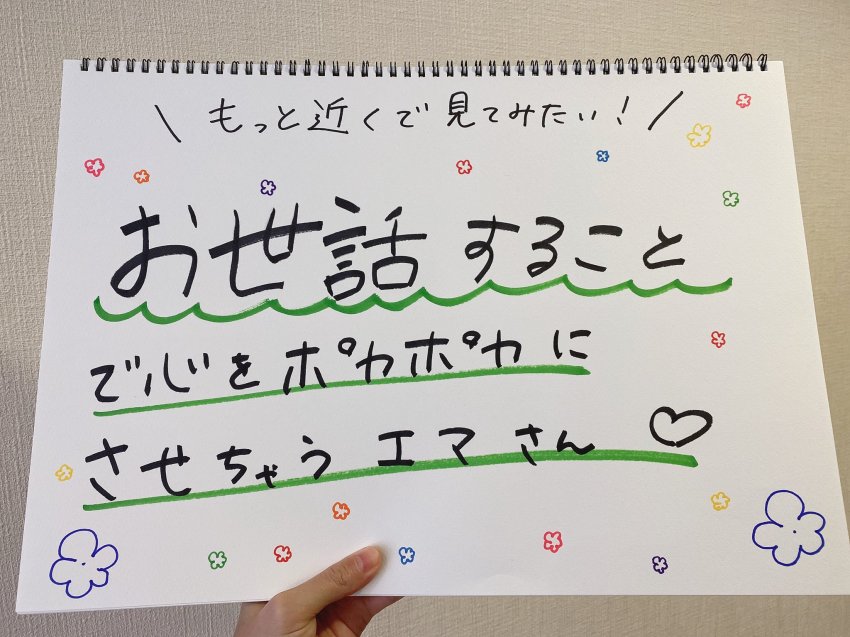 \ もっと近くで見てみたい！ /
お世話すること
で心をポカポカに
させちゃうエマさん♡